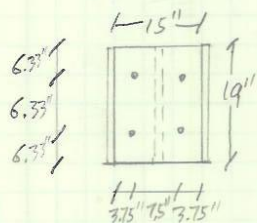 15"
6.33"
6.33"
19"
6.33"
3.75" 7.5" 3.75"